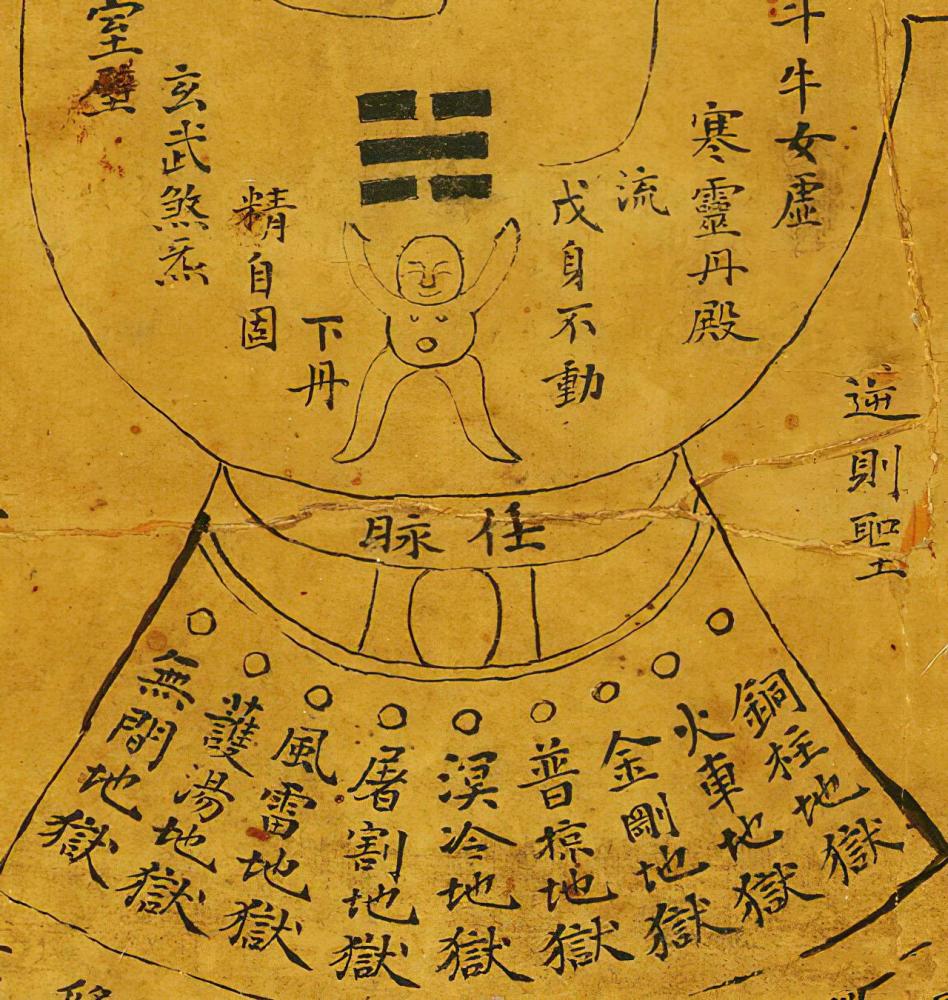 斗牛女虛
寒靈丹殿
流
戊身不動
下丹
精自固
玄武煞炁
室壁
逆則聖
任脉
銅柱地獄
火車地獄
金剛地獄
普掠地獄
溟冷地獄
屠割地獄
風雷地獄
地獄
無間地獄